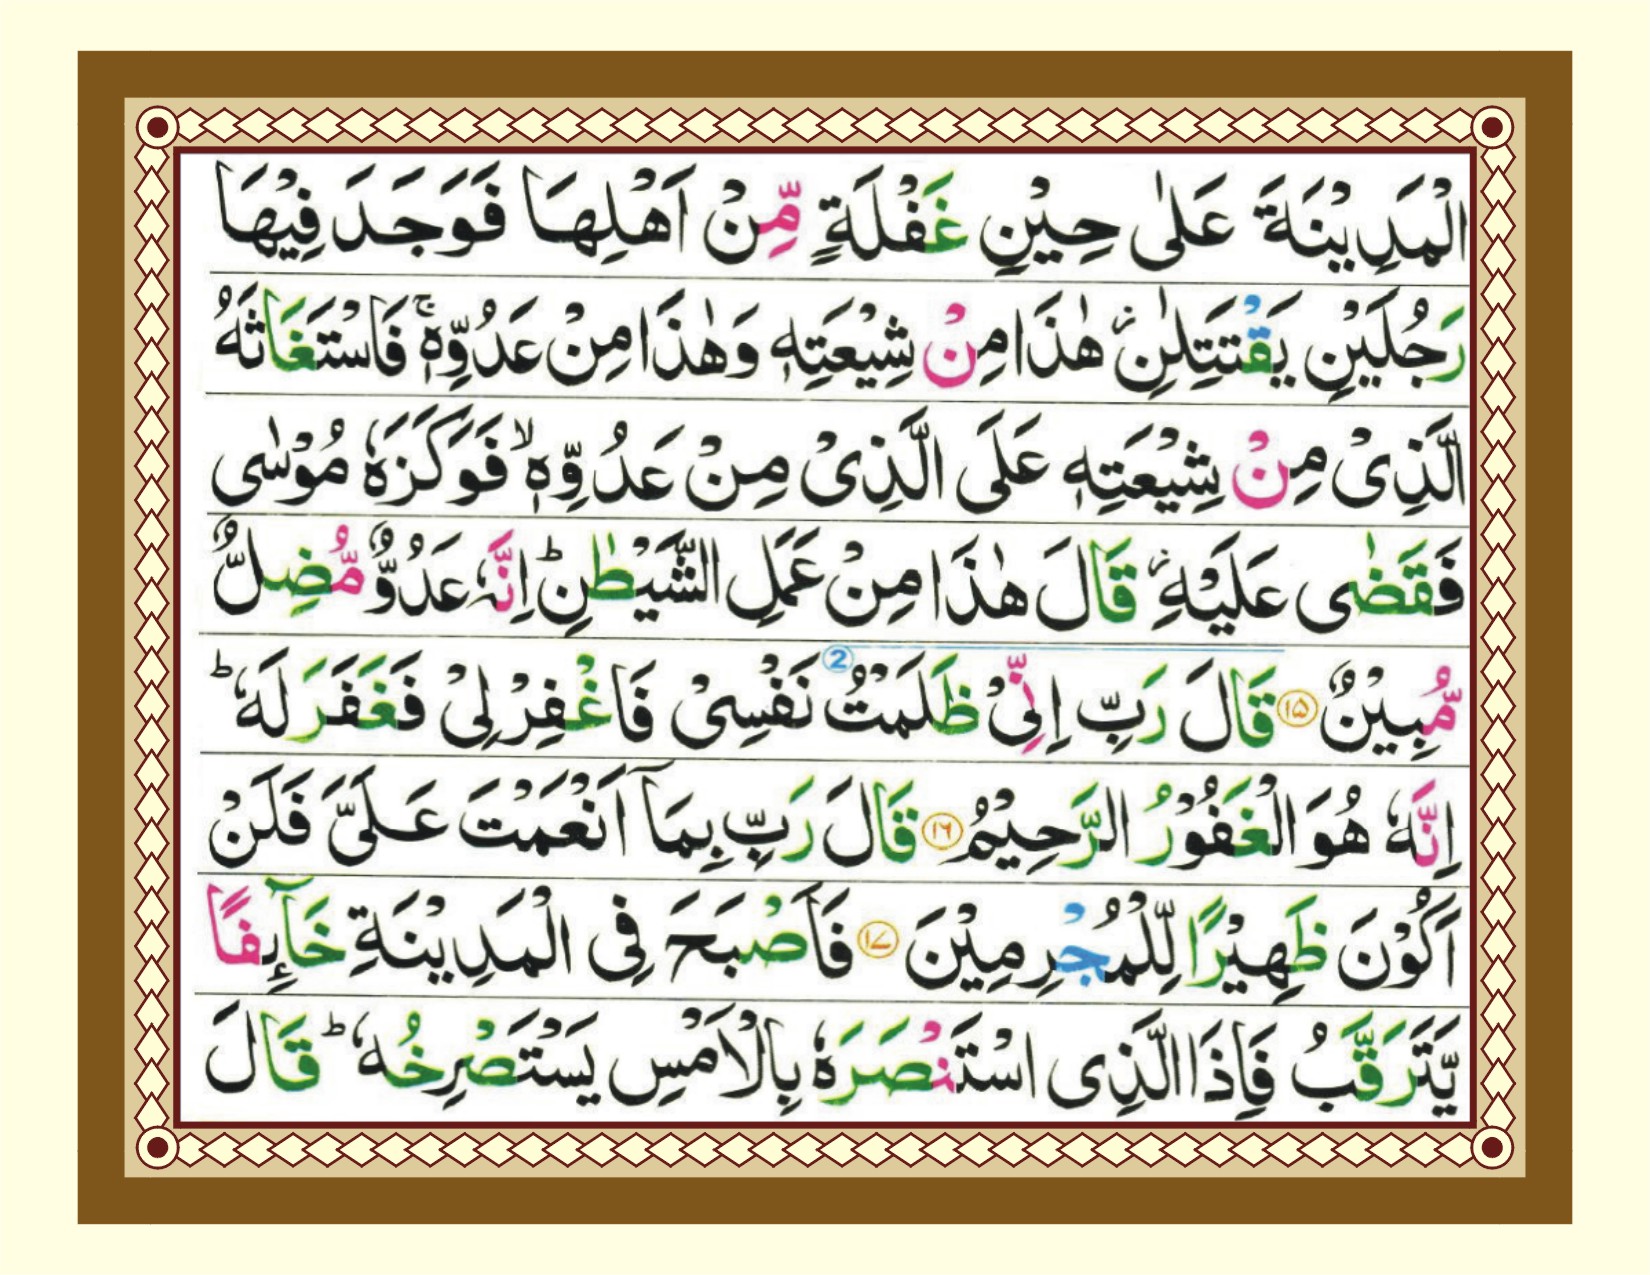 الْمَدِيْنَةَ عَلٰى حِيْنِ غَفْلَةٍ مِّنْ اَهْلِهَا فَوَجَدَ فِيْهَا
رَجُلَيْنِ يَقْتَتِلٰنِ ؗ هٰذَا مِنْ شِيْعَتِهٖ وَهٰذَا مِنْ عَدُوِّهٖ ۚ فَاسْتَغَاثَهُ
الَّذِىْ مِنْ شِيْعَتِهٖ عَلَى الَّذِىْ مِنْ عَدُوِّهٖ ۙ فَوَكَزَهٗ مُوْسٰى
فَقَضٰى عَلَيْهِ ؗ قَالَ هٰذَا مِنْ عَمَلِ الشَّيْطٰنِ ؕ اِنَّهٗ عَدُوٌّ مُّضِلٌّ
مُّبِيْنٌ ۝۱۵ قَالَ رَبِّ اِنِّىْ ظَلَمْتُ 2 نَفْسِىْ فَاغْفِرْ لِىْ فَغَفَرَ لَهٗ ؕ
اِنَّهٗ هُوَ الْغَفُوْرُ الرَّحِيْمُ ۝۱۶ قَالَ رَبِّ بِمَاۤ اَنْعَمْتَ عَلَىَّ فَلَنْ
اَكُوْنَ ظَهِيْرًا لِّلْمُجْرِمِيْنَ ۝۱۷ فَاَصْبَحَ فِى الْمَدِيْنَةِ خَآٮِٕفًا
يَّتَرَقَّبُ فَاِذَا الَّذِى اسْتَنْصَرَهٗ بِالْاَمْسِ يَسْتَصْرِخُهٗ ؕ قَالَ